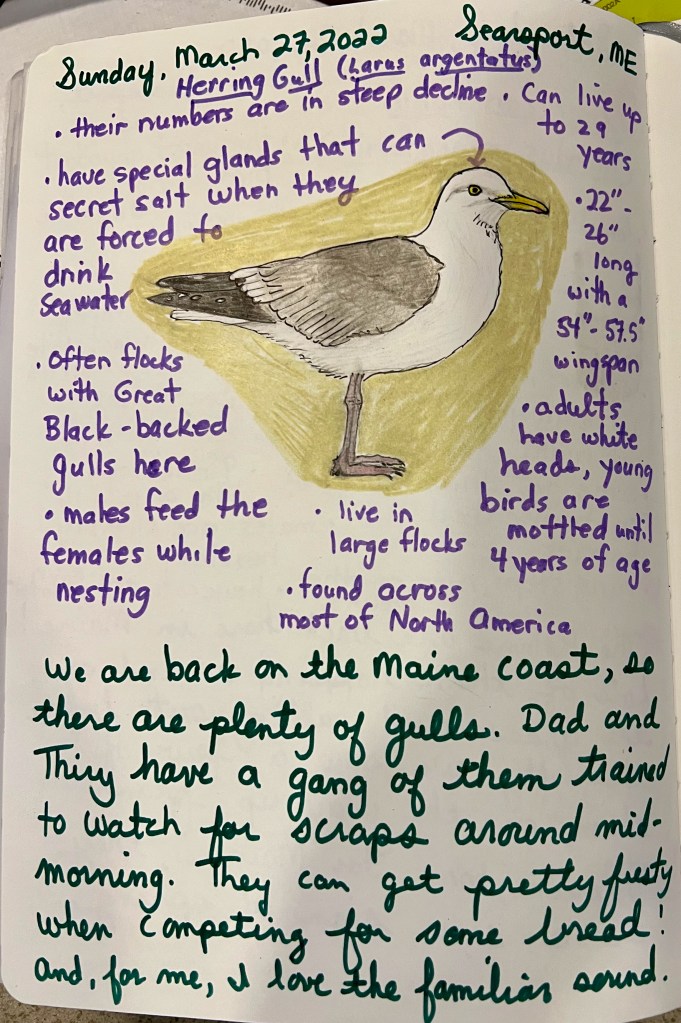 Sunday, March 27, 2022 Searsport, ME
Herring Gull (Larus argentatus)
• their numbers are in steep decline
• Can live up
to 29
years
• have special glands that can
secret salt when they
are forced to
drink
Seawater
• 22"-
26"
long
with a
54"- 57.5"
wingspan
• Often flocks
with Great
Black-backed
gulls here
• adults
have white
heads, young
birds are
mottled until
4 years of age
• males feed the
females while
nesting
• live in
large flocks
• found across
most of North America
We are back on the Maine coast, so
there are plenty of gulls. Dad and
have a gang of them trained
to watch for scraps around mid-
morning. They can get pretty
when competing for some bread!
And, for me, I love the familiar sound.